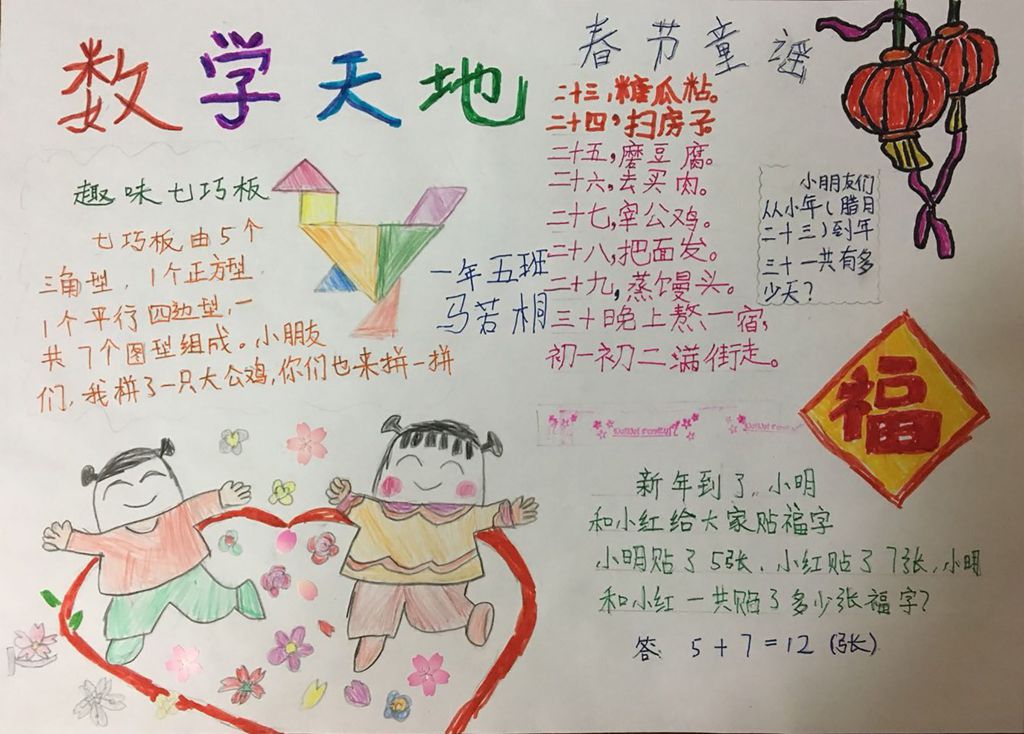 数学天地
趣味七巧板
七巧板由5个
三角型，1个正方型，
1个平行四边型，一
共7个图型组成。小朋友
们，我拼了一只大公鸡，你们也来拼一拼
一年五班
马若桐
春节童谣
二十三，糖瓜粘。
二十四，扫房子
二十五，磨豆腐。
二十六，去买肉。
二十七，宰公鸡。
二十八，把面发。
二十九，蒸馒头。
三十晚上熬一宿，
初一初二满街走。
小朋友们
从小年（腊月
二十三）到年
三十一共有多
少天？
福
新年到了，小明
和小红给大家贴福字
小明贴了5张，小红贴了7张，小明
和小红一共贴了多少张福字？
答：5+7=12（张）